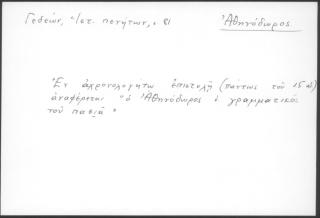 Γεδεών, Ἱστ. πενήτων, σ. 81
Ἀθηνόδωρος.
Ἐν ἀχρονολογήτῳ ἐπιστολῇ (πάντως τοῦ 15 αἰ)
ἀναφέρεται "ὁ Ἀθηνόδωρος ὁ γραμματικὸς
τοῦ πασιᾶ"